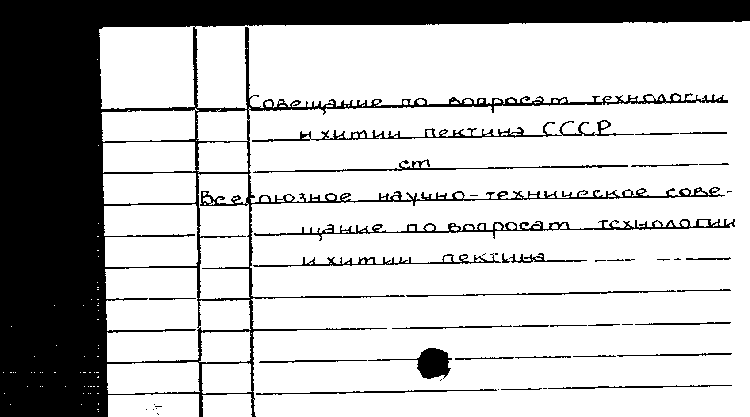 Совещание по вопросам технологии
и химии пектина СССР.
см
Всесоюзное научно-техническое сове-
щание по вопросам технологии
и химии пектина